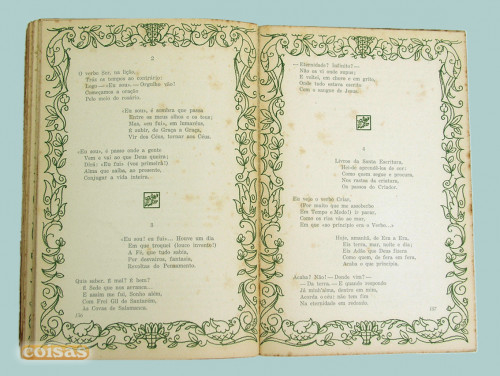 2
O verbo Ser, na lição,
Tela os tempos ao contrário:
Logo — «Eu sou». — Orgulho não!
Começamos a oração
Pelo meio do rosário.
«Eu sou», é sombra que passa
Entre os meus olhos e os teus;
Mas, «eu fui», em lumaréus,
E subir, de Graça a Graça,
Vir dos Céus, tornar aos Céus.
«Eu sou», é passo onde a gente
Vem e vai ao que Deus queira;
Dizei: «Eu fui» (vez primeira!)
Alma que saiba, ao presente,
Conjugar a vida inteira.
3
«Eu sou? ou fui»... Houve um dia
Em que troquei (louco invento!)
A Fé, que tudo sabia,
Por devaneios, fantasia,
Revoltas do Pensamento.
Quis saber. E mal? E bem?
E Sede que nos arrasca...
E assim me fui, Sonho além,
Com Frei Gil de Santarém,
As Covas de Salamanca.
156
— Eternidade? Infinito? —
Não os vi onde supus;
E voltei, em choro e em grito,
Onde tudo estava escrito
Com o sangue de Jesus.
4
Livros da Santa Escritura,
Hei-de aprendê-los de cor:
Como quem segue e procura,
Nos rastos da criatura,
Os passos do Criador.
Eu vejo o verbo Criar,
(Por muito que me assoberbe
Em Tempo e Modo!) é parar,
Como os rios vão ao mar,
Em que «ao princípio era o Verbo...»
Hoje, amanhã, de Era a Era,
Eis terra, mar, noite e dia;
Eis Adão que Deus fizera
Como quem, da fera em fera,
Acaba o que principia.
Acaba? Não! — Donde vem? —
— Da terra. — E quando responde
Já mistérios, dentro em mim,
Acorda o não: não tem fim
Na eternidade em redondo.
157
coisas